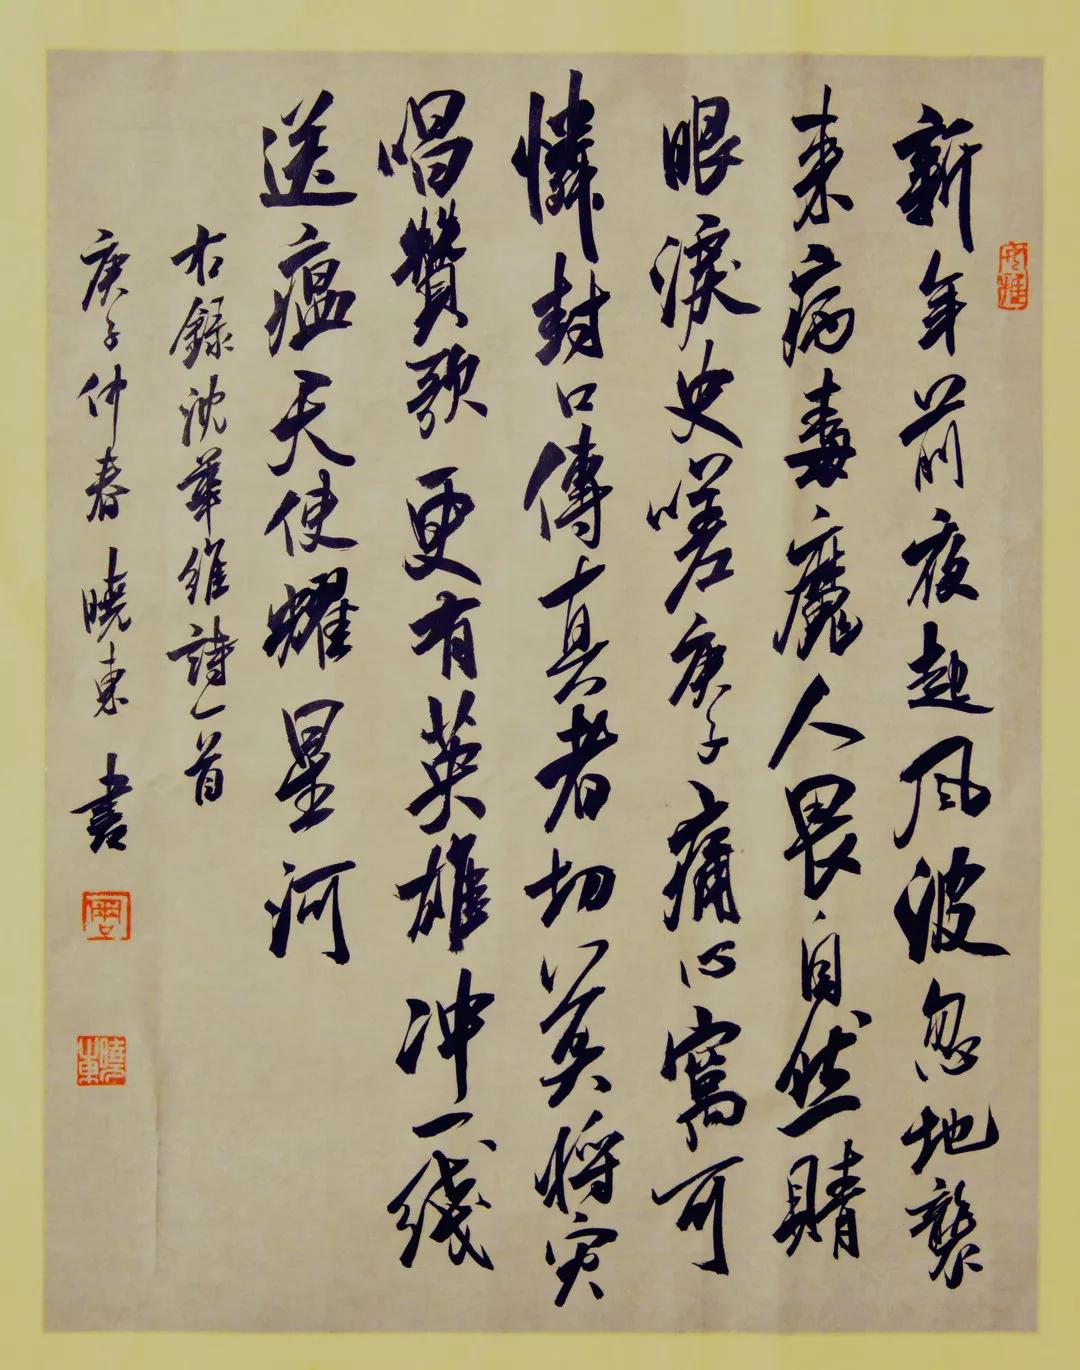 新年前夜起风波忽地襲
来病毒魔人畏自然睛
眼淚史嗟庚子痛心窩可
憐封口傳真者切莫將灾
唱贊歌更有英雄冲一綫
送瘟天使耀星河
右録沈華維詩一首
庚子仲春曉東書
曉東